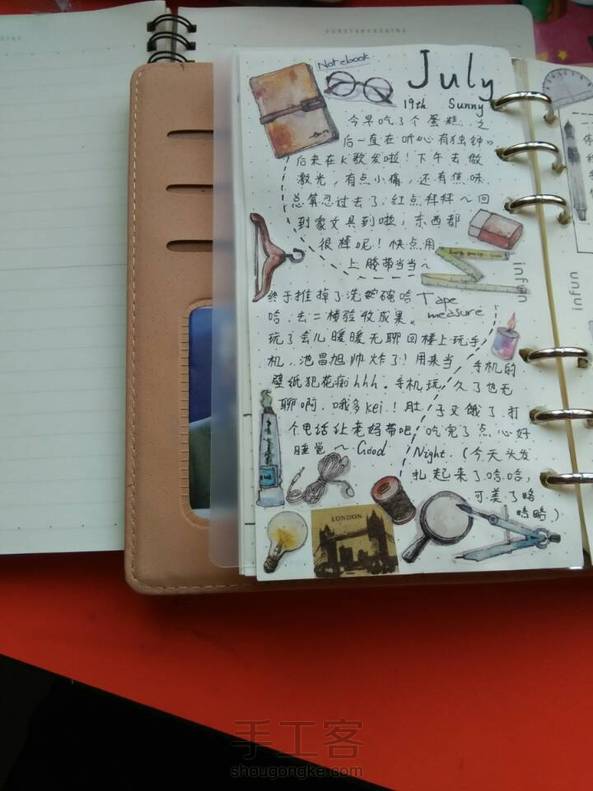 Notebook
July
19th Sunny
今早吃了个蛋糕，之
后一直在听心有独钟。
后来在K歌发啦！下午去做
激光，有点小痛，还有焦味.
总算忍过去了.红点样样～回
到家文具到啦，东西都
很棒呢！快点用
上胶带当当～
终于推掉了洗碗哈 Tape
哈.去二楼验收成果。 measure
玩了会儿暖暖无聊回楼上玩手
机，池昌旭帅炸了！用来当手机的
壁纸犯花痴hhh.手机玩久了也无
聊啊.哦多kei.！肚子又饿了.打
个电话让老妈带吧，吃完了点心好
睡觉～Good Night.（今天头发
扎起来了哈哈，
可美了咯
咯咯）
LONDON
infun
infun
手工客
shougongke.com